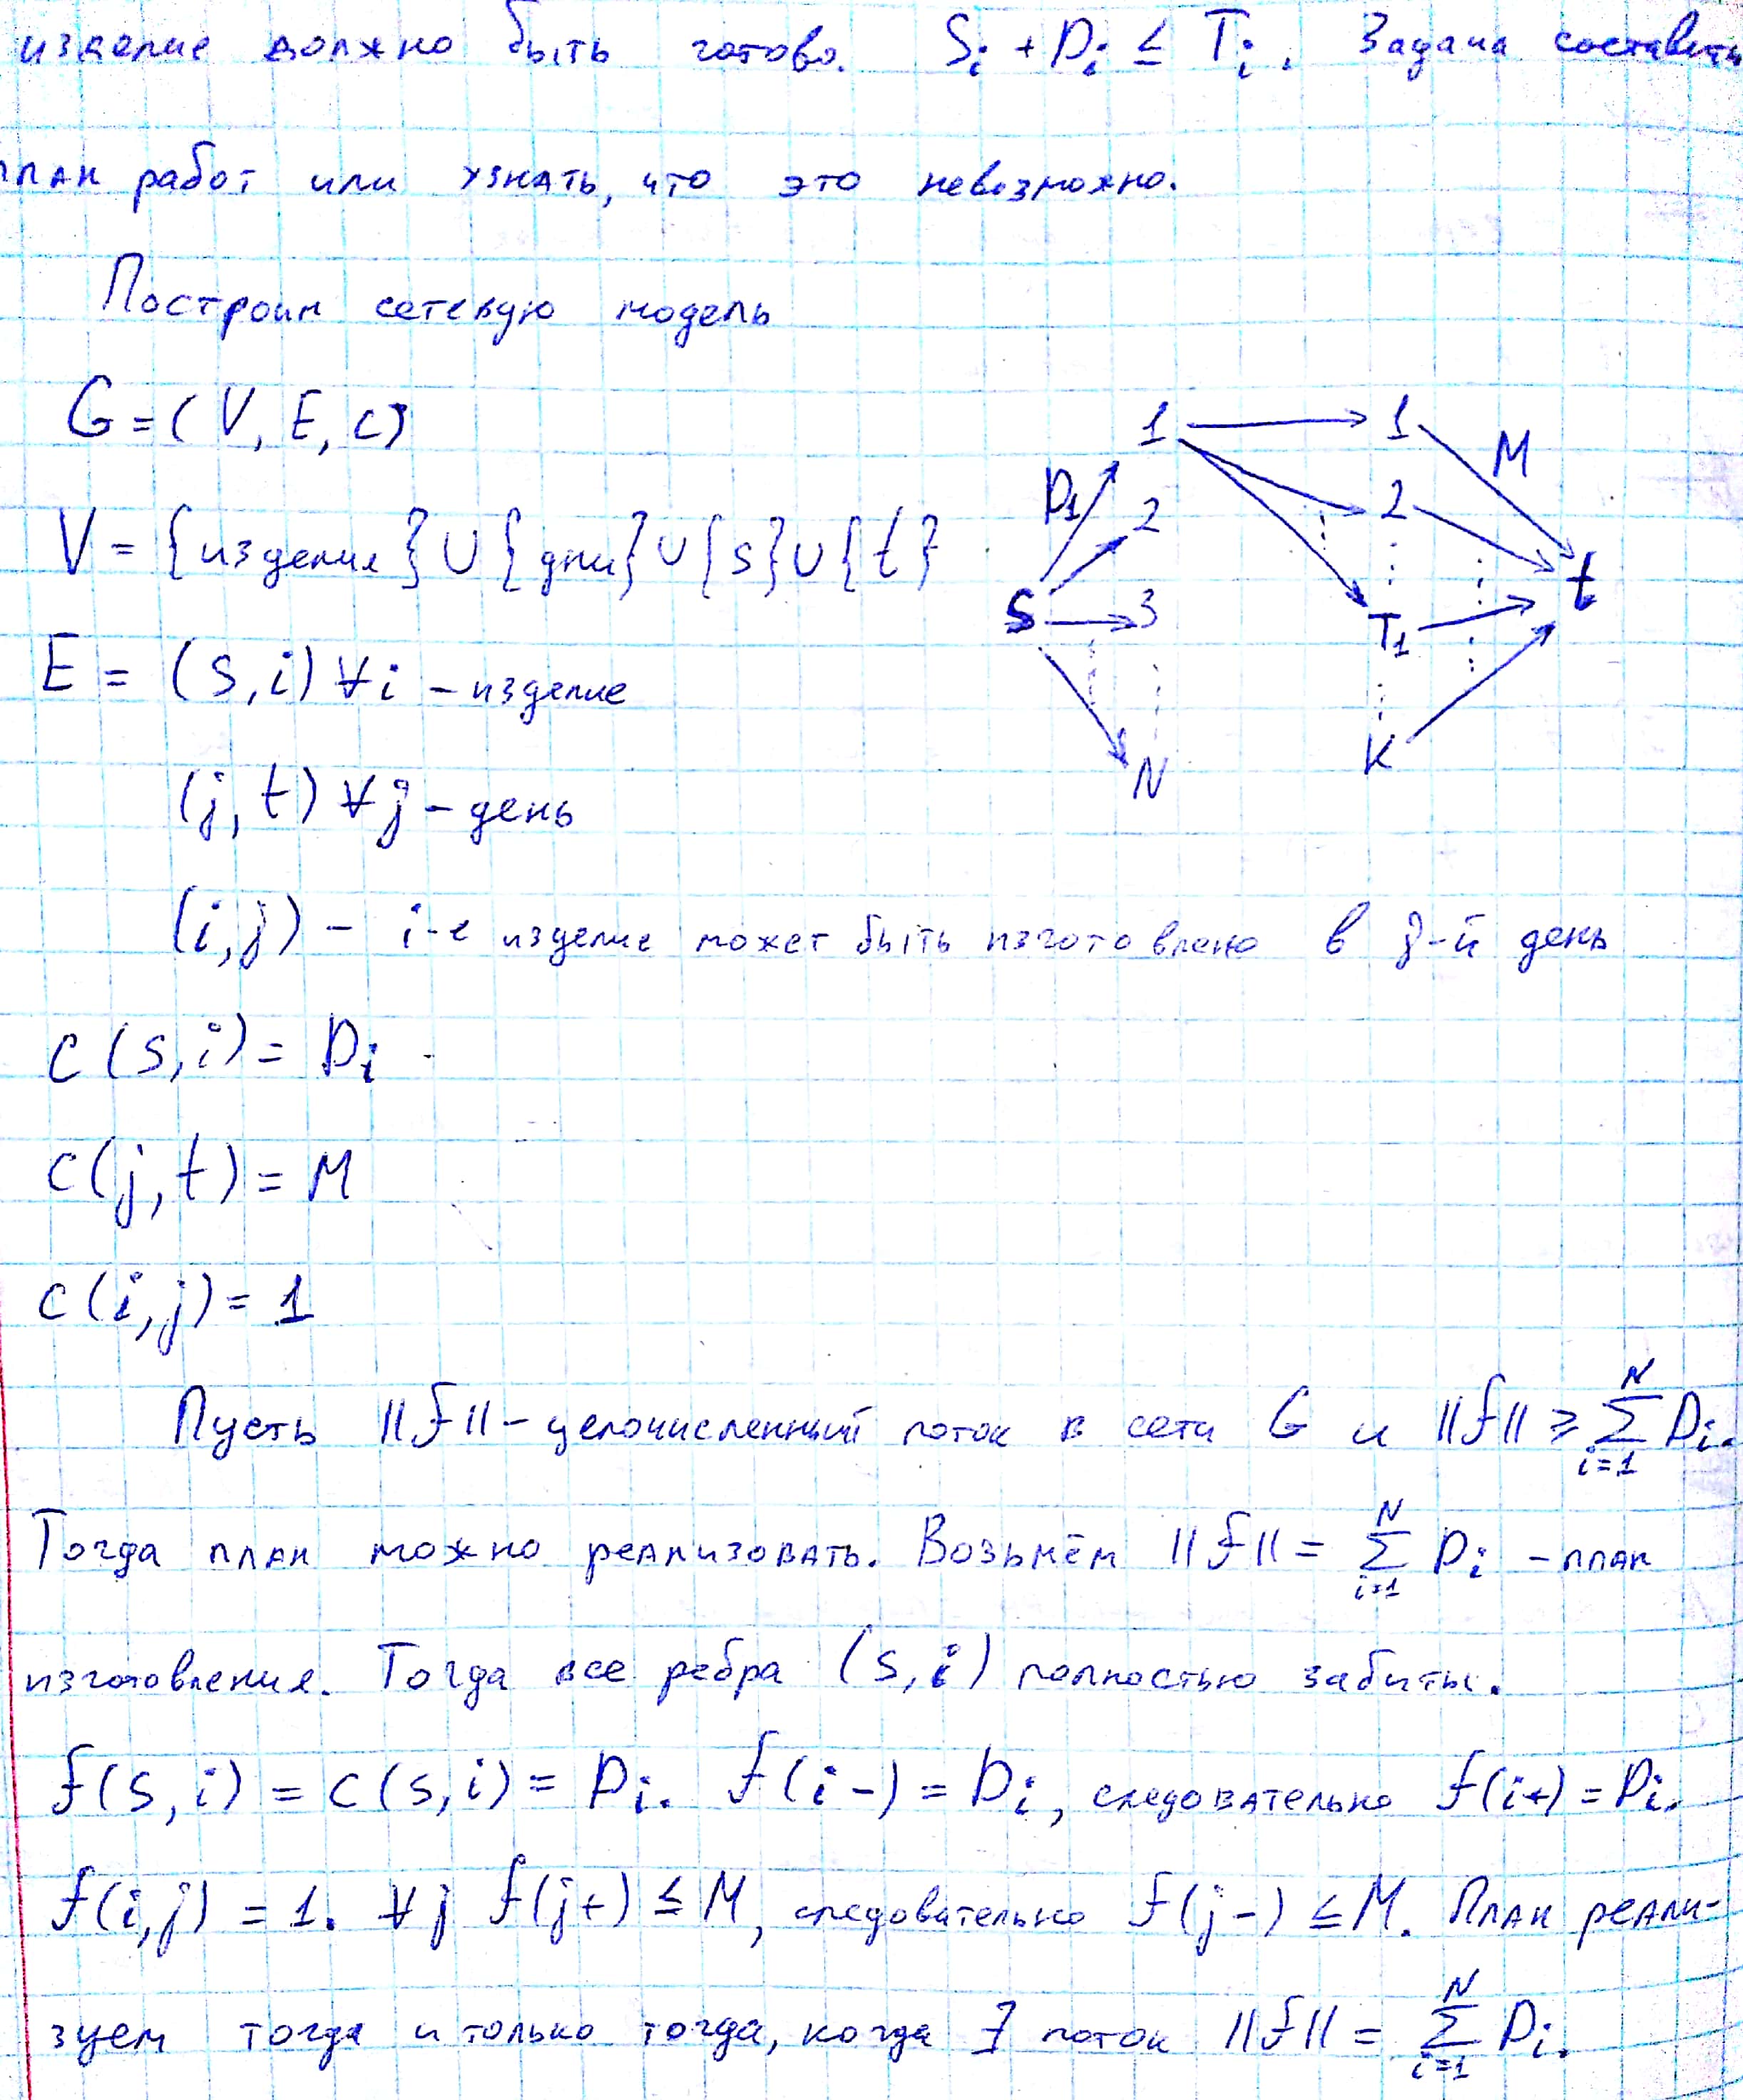 изделие должно быть готово. Sᵢ + Dᵢ ≤ Tᵢ. Задача составить
план работ или узнать, что это невозможно.
Построим сетевую модель
G = (V, E, C)
V = {изделия} ∪ {дни} ∪ {s} ∪ {t}
E = (s, i) ∀i – изделие
(j, t) ∀j – день
(i, j) – i-е изделие может быть изготовлено в j-й день
C(s, i) = Dᵢ
C(j, t) = M
C(i, j) = 1
1 1 M
D₁ 2 2
S 3 T₁ t
N K
Пусть ||f|| – целочисленный поток в сети G и ||f|| ≥ ∑ᵢ₌₁ᴺ Dᵢ.
Тогда план можно реализовать. Возьмём ||f|| = ∑ᵢ₌₁ᴺ Dᵢ – план
изготовления. Тогда все ребра (s, i) полностью забиты.
f(s, i) = c(s, i) = Dᵢ. f(i-) = Dᵢ, следовательно f(i+) = Dᵢ.
f(i, j) = 1. ∀j f(j+) ≤ M, следовательно f(j-) ≤ M. План реали-
зуем тогда и только тогда, когда ∃ поток ||f|| = ∑ᵢ₌₁ᴺ Dᵢ.